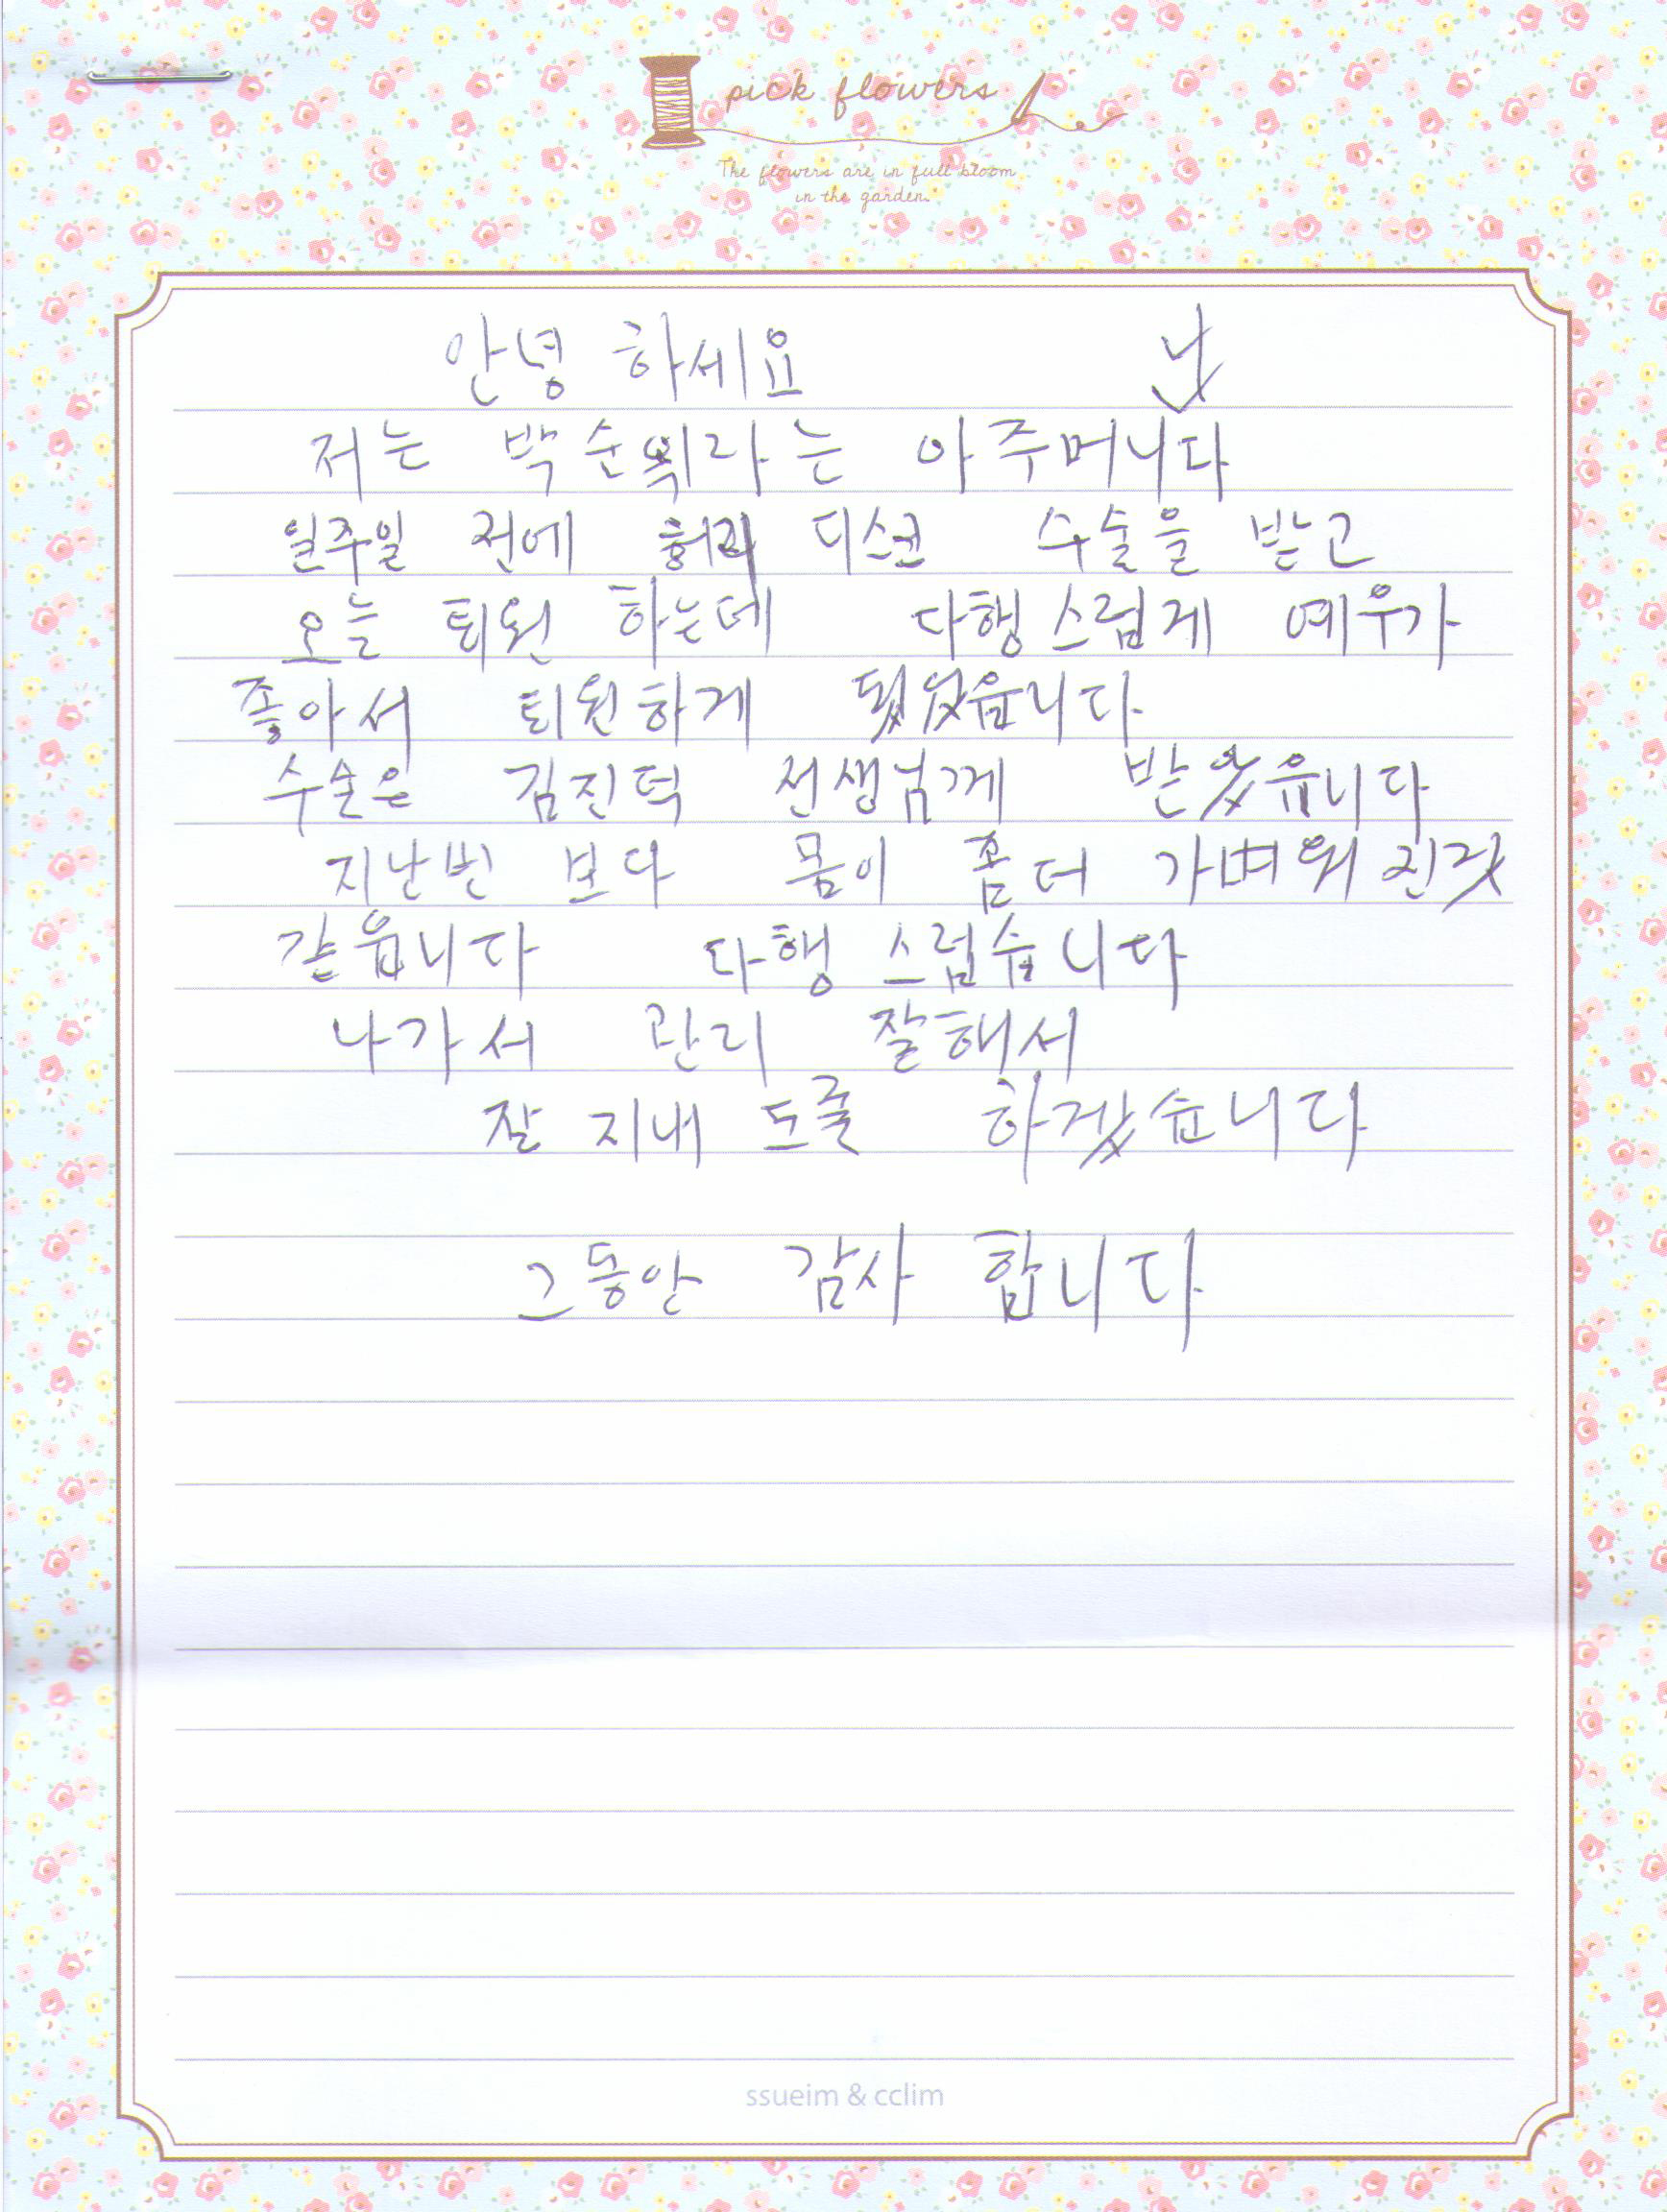 pick flowers
The flowers are in full bloom
in the garden.
안녕 하세요
저는 박순 라는 아주머니다
일주일 전에 허리 디스크 수술을 받고
오늘 퇴원 하는데 다행스럽게 예우가
좋아서 퇴원하게 됬었읍니다
수술은 김진덕 선생님께 받았읍니다
지난번 보다 몸이 좀더 가벼워 진것
같읍니다 다행 스럽습니다
나가서 관리 잘해서
잘 지내 도줄 하겠습니다
그동안 감사 합니다
ssueim & cclim